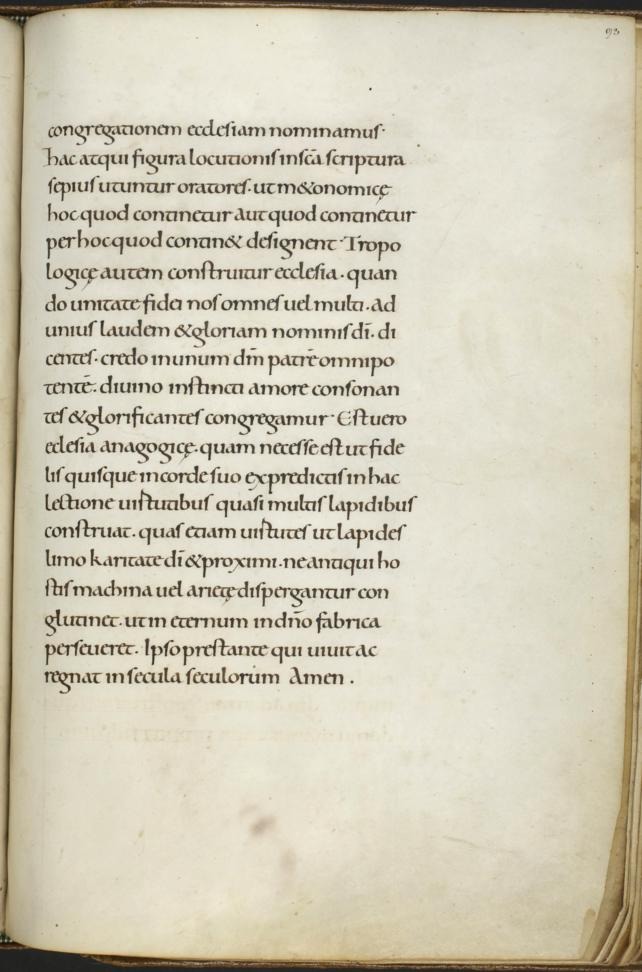 93
congregationem ecclesiam nominamus·
hac atqui figura locutionis in sc̄a scriptura
sepius utuntur oratores· ut m&onomicę
hoc quod continetur aut quod continetur
per hoc quod contin& designent· Tropo
logicę autem construitur ecclesia· quan
do unitate fidei nos omnes uel multi· ad
unius laudem &gloriam nominis dī· di
centes· credo in unum dm̄ patrē omnipo
tentē· diuino instincti amore consonan
tes &glorificantes congregamur· Est uero
eclesia anagogicę· quam necesse est ut fide
lis quisque in corde suo ex predictis in hac
lectione uirtutibus quasi multis lapidibus
construat· quas etiam uirtutes ut lapides
limo karitate dī &proximi· ne antiqui ho
stis machina uel arietę dispergantur con
glutinet· ut in eternum in dn̄o fabrica
perseueret· Ipso prestante qui uiuit ac
regnat in secula seculorum Amen·